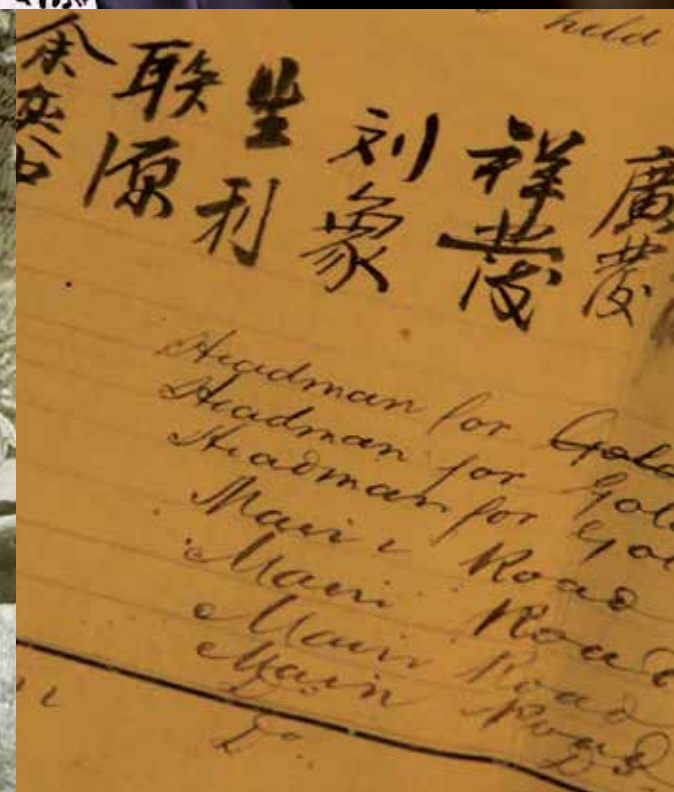 held
廣
祥
刘象
利
联源
余
Headman for Gold
Headman for Gol
Headman for Gol
Main Road
Main Road
Main Road
Main Road
Do Do
Do